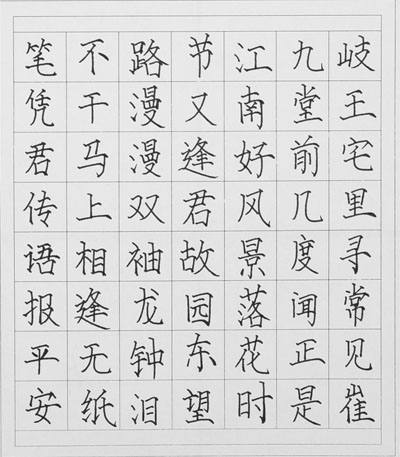 岐王宅里寻常见崔
九堂前几度闻正是
江南好风景落花时
节又逢君故园东望
路漫漫双袖龙钟泪
不干马上相逢无纸
笔凭君传语报平安